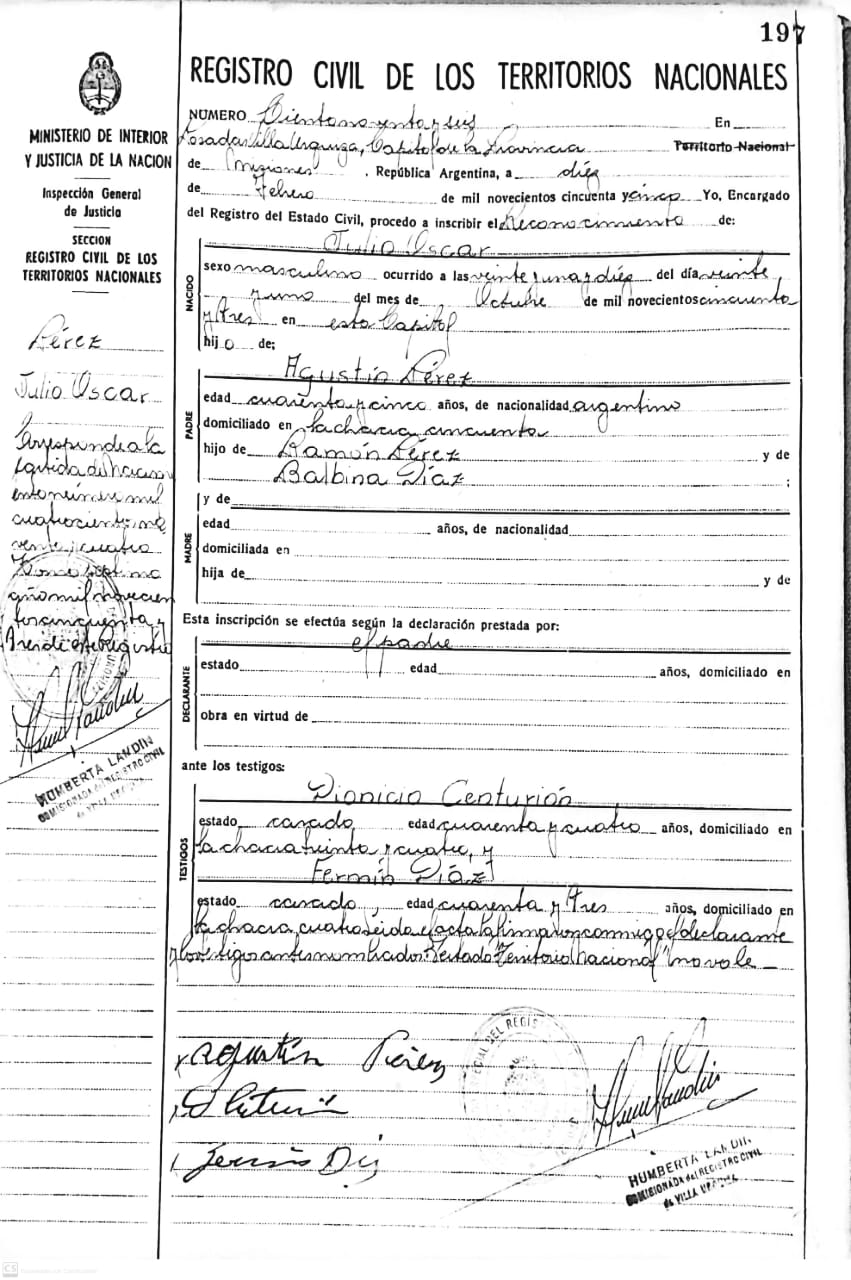 197
MINISTERIO DE INTERIOR
Y JUSTICIA DE LA NACION
Inspección General
de Justicia
SECCION
REGISTRO CIVIL DE LOS
TERRITORIOS NACIONALES
Pérez
Julio Oscar
Corresponde a la
partida de nacimi
ento número mil
cuatrocientos no
venta y cuatro
Tomo séptimo
año mil novecien
tos cincuenta y
tres de este Registro
HUMBERTA LANDIN
COMISIONADA del REGISTRO CIVIL
de VILLA URQUIZA
REGISTRO CIVIL DE LOS TERRITORIOS NACIONALES
NUMERO Ciento noventa y seis En
Posadas Villa Urquiza, Capital de la Provincia Territorio Nacional
de Misiones, República Argentina, a diez
de Febrero de mil novecientos cincuenta y cinco Yo, Encargado
del Registro del Estado Civil, procedo a inscribir el Reconocimiento de:
NACIDO
Julio Oscar
sexo masculino ocurrido a las veinte y una y diez del día veinte
y uno del mes de Octubre de mil novecientos cincuenta
y tres en esta Capital
hijo de;
PADRE
Agustín Pérez
edad cuarenta y cinco años, de nacionalidad argentino
domiciliado en la chacra cincuenta
hijo de Ramón Pérez y de
Balbina Díaz ;
MADRE
y de
edad años, de nacionalidad
domiciliada en
hija de y de
Esta inscripción se efectúa según la declaración prestada por:
DECLARANTE
el padre
estado edad años, domiciliado en
obra en virtud de
ante los testigos:
TESTIGOS
Dionicio Centurión
estado casado edad cuarenta y cuatro años, domiciliado en
la chacra treinta y cuatro, y
Fermín Díaz
estado casado, edad cuarenta y tres años, domiciliado en
la chacra cuatro leída el acta la firmaron conmigo el declarante
y los testigos antes nombrados. Testado "Territorio Nacional" no vale
Agustín Pérez
Fermín Díaz
HUMBERTA LANDIN
COMISIONADA del REGISTRO CIVIL
de VILLA URQUIZA
CS